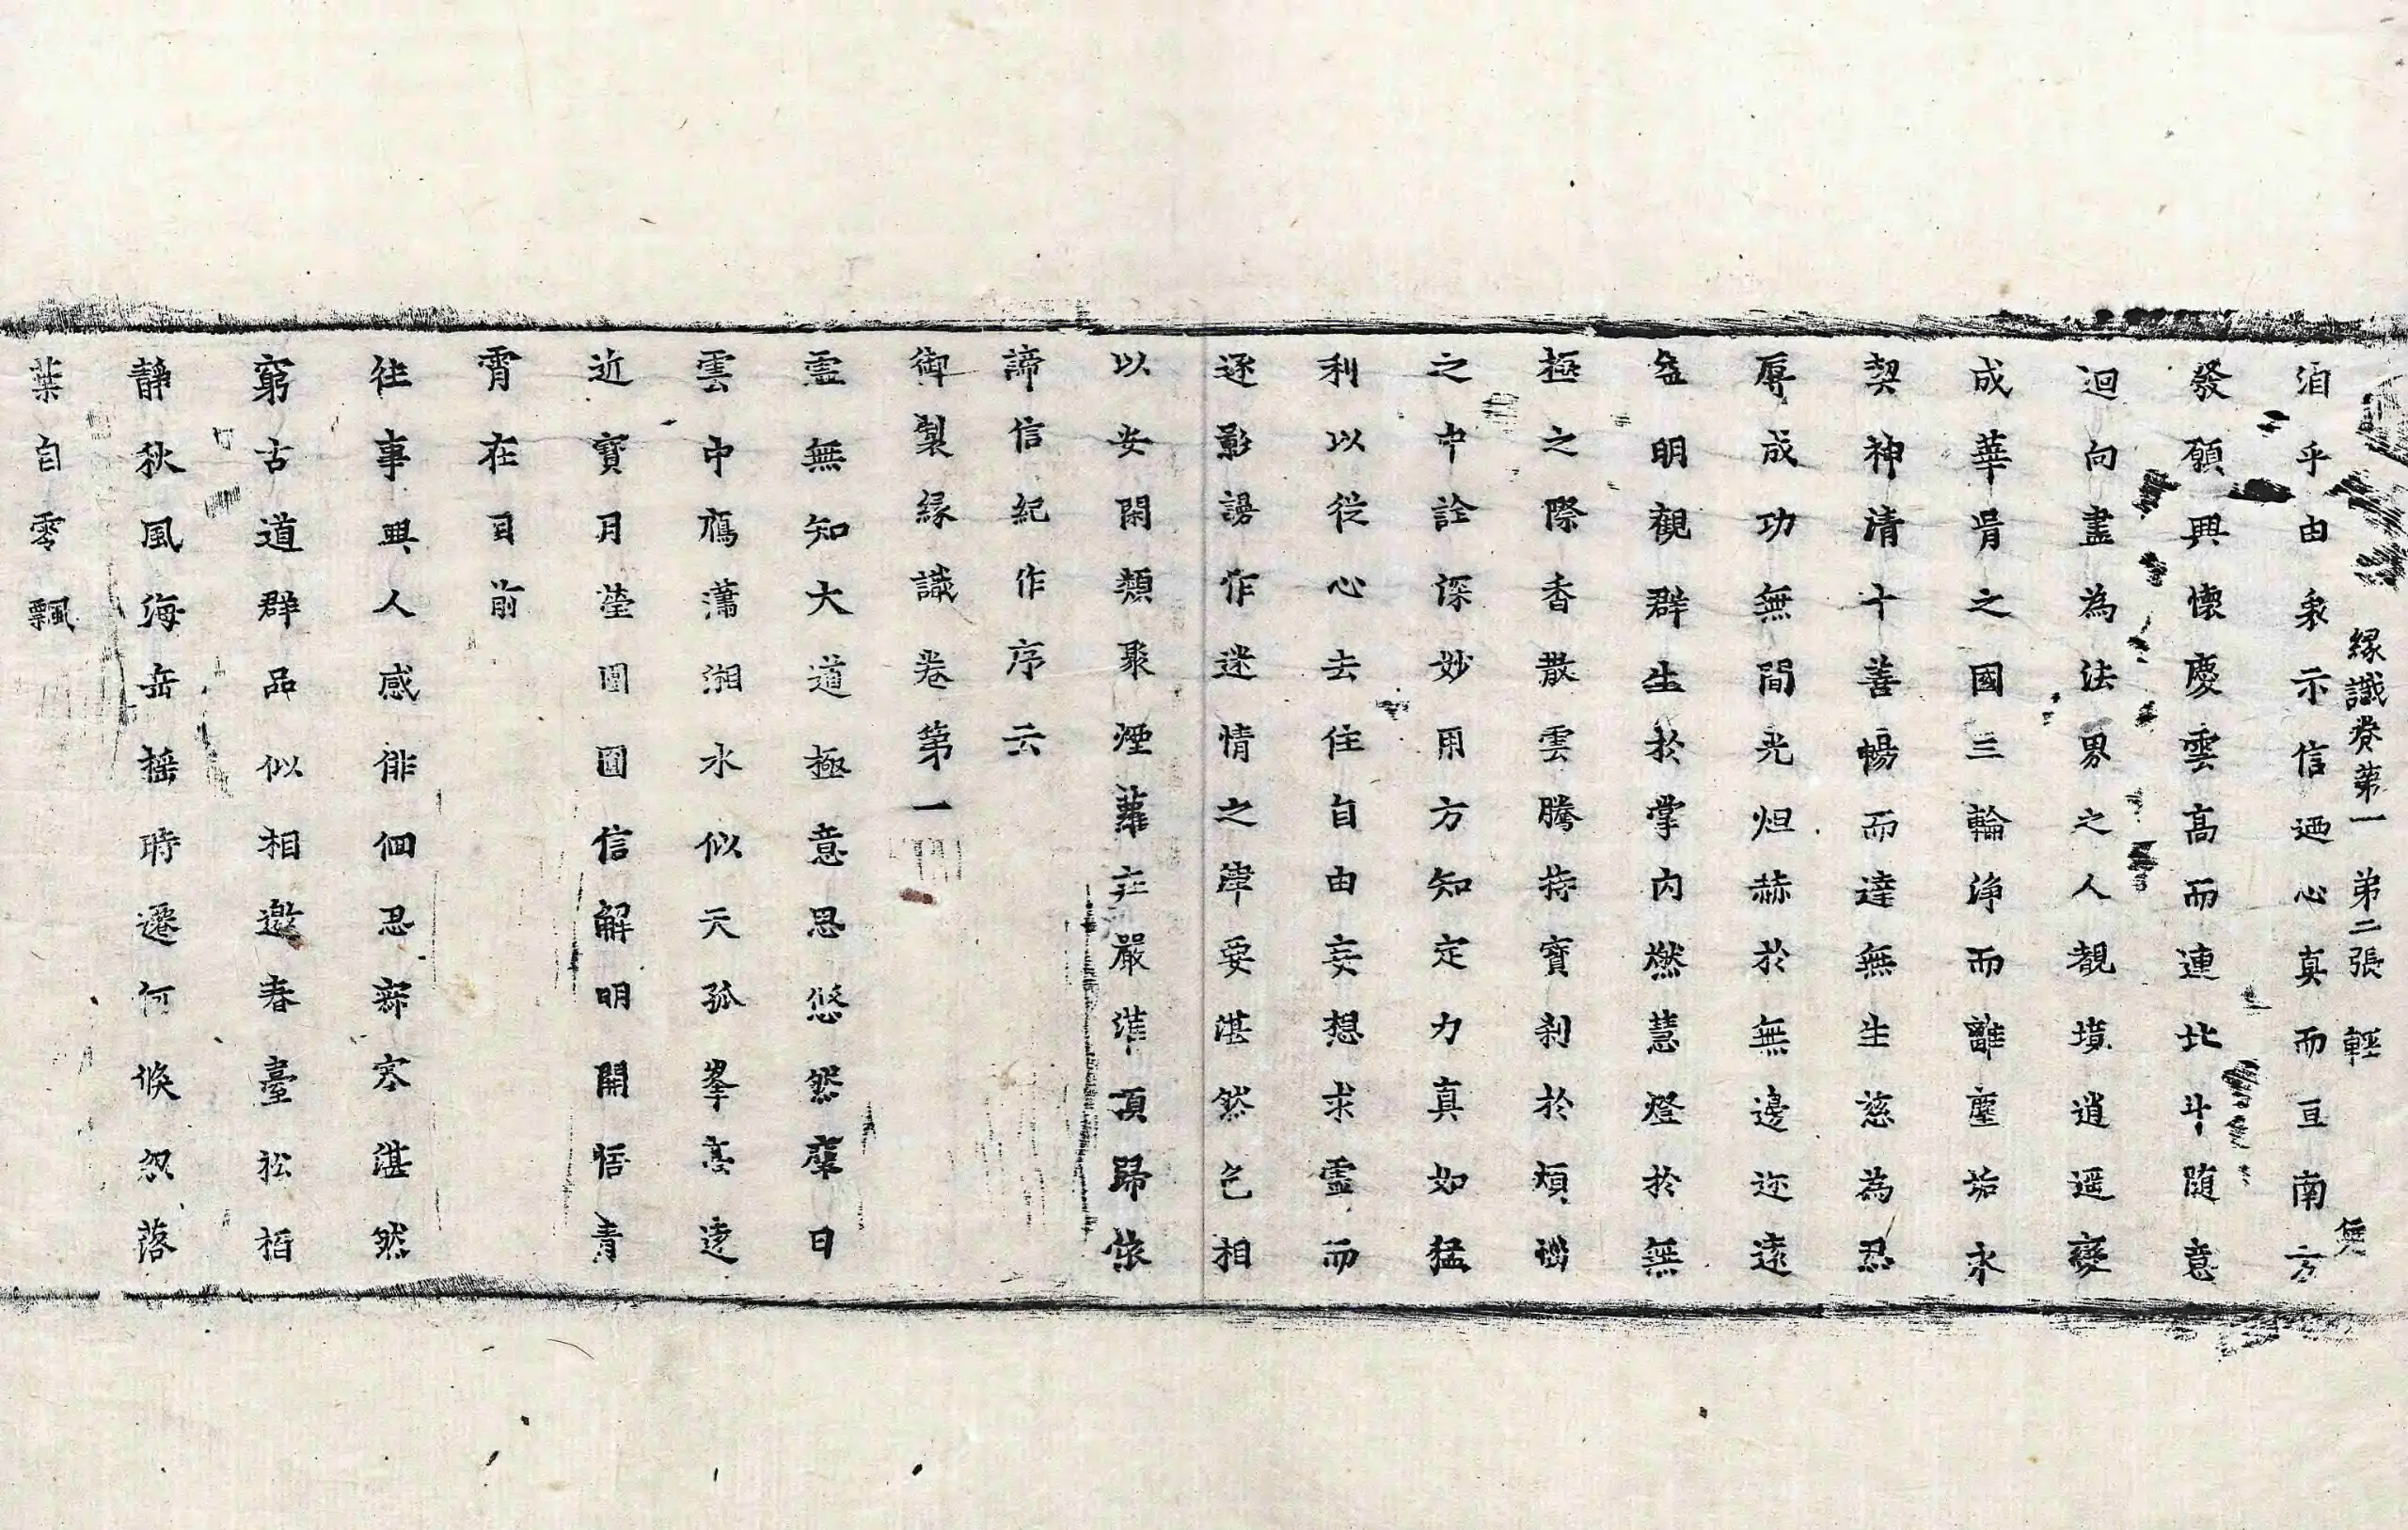 緣識卷第一　弟二張　輕
洎乎由衆示信迺心真而亘南方
發願興懷慶雲高而連北斗随意
迴向盡為法界之人覩境逍遥變
成華胥之國三輪淨而離塵垢永
契神清十善暢而達無生慈為忍
辱成功無間光烜赫於無邊迩遠
益明觀群生於掌內燃慧燈於無
極之際香散雲騰持寶刹於煩惱
之中詮深妙用方知定力真如猛
利以從心去住自由妄想求靈而
逐影謗作迷情之津要湛然色相
以安閑類聚煙蘿庄嚴准頂歸依
諦信紀作序云
御製緣識卷第一
靈無知大道極意思悠然靡日
雲中鴈瀟湘水似天孤峯高遠
近寶月瑩圓圓信解明開悟青
霄在目前
往事興人感俳佪忍寐寒湛然
窮古道群品似相邀春臺松栢
静秋風海岳摇時遷何倏忽落
葉自零飄